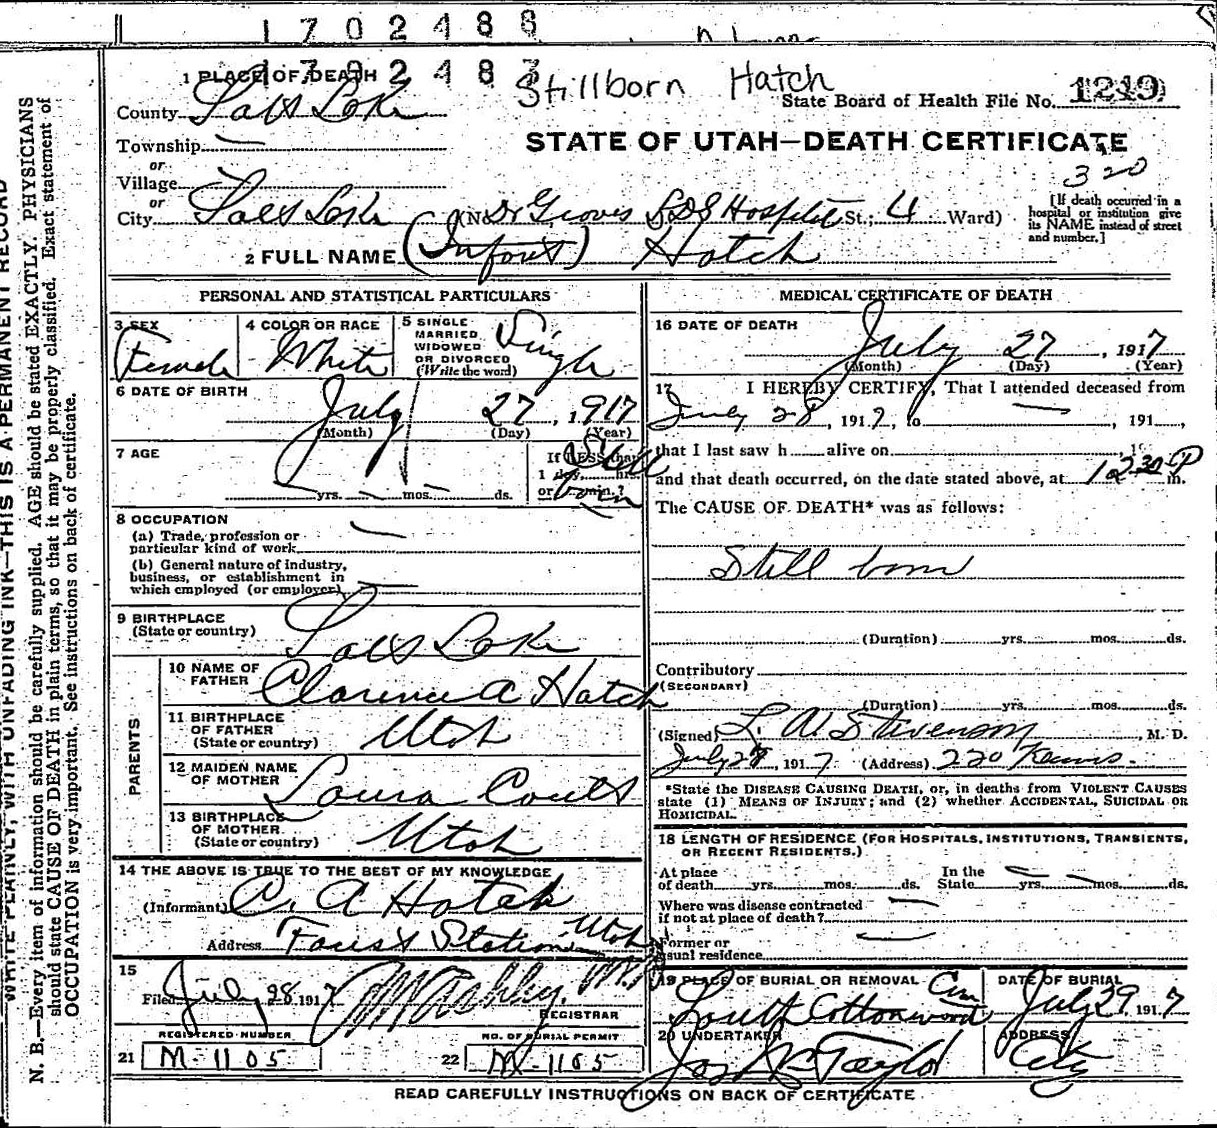 1702488
1702487
Stillborn Hatch
1 PLACE OF DEATH
State Board of Health File No. 1219
County Salt Lake
STATE OF UTAH—DEATH CERTIFICATE
Township —
or
Village
320
or
City Salt Lake (No. Dr Groves LDS Hospital St.; 4 Ward)
[If death occurred in a hospital or institution give its NAME instead of street and number.]
2 FULL NAME (Infant) Hatch
PERSONAL AND STATISTICAL PARTICULARS
3 SEX Female
4 COLOR OR RACE White
5 SINGLE MARRIED, WIDOWED OR DIVORCED (Write the word) Single
6 DATE OF BIRTH
July 27, 1917
(Month) (Day) (Year)
7 AGE
If LESS than 1 day, hrs. or min.? Still born
yrs. — mos. — ds.
8 OCCUPATION
(a) Trade, profession or particular kind of work —
(b) General nature of industry, business, or establishment in which employed (or employer) —
9 BIRTHPLACE (State or country) Salt Lake
PARENTS
10 NAME OF FATHER Clarence A Hatch
11 BIRTHPLACE OF FATHER (State or country) Utah
12 MAIDEN NAME OF MOTHER Laura Coults
13 BIRTHPLACE OF MOTHER (State or country) Utah
14 THE ABOVE IS TRUE TO THE BEST OF MY KNOWLEDGE
(Informant) C. A Hatch
Address Station Utah
15
Filed July 28 1917 M.D.
REGISTRAR
REGISTERED NUMBER
NO. OF BURIAL PERMIT
21 M-1105
22 M-1105
MEDICAL CERTIFICATE OF DEATH
16 DATE OF DEATH
July 27, 1917
(Month) (Day) (Year)
17 I HEREBY CERTIFY, That I attended deceased from
July 28, 1917, to —, 191
that I last saw h alive on 191
and that death occurred, on the date stated above, at 12 30 P m.
The CAUSE OF DEATH* was as follows:
Still born
(Duration) yrs. mos. ds.
Contributory
(SECONDARY)
(Duration) yrs. mos. ds.
(Signed) L. W Stevenson, M. D.
July 28, 1917 (Address) 220 Kearns.
*State the DISEASE CAUSING DEATH, or, in deaths from VIOLENT CAUSES state (1) MEANS OF INJURY; and (2) whether ACCIDENTAL, SUICIDAL OR HOMICIDAL.
18 LENGTH OF RESIDENCE (FOR HOSPITALS, INSTITUTIONS, TRANSIENTS, OR RECENT RESIDENTS.)
At place of death yrs. mos. ds. In the State — yrs. — mos. ds.
Where was disease contracted if not at place of death? —
Former or usual residence —
19 PLACE OF BURIAL OR REMOVAL South Cottonwood Cem
DATE OF BURIAL July 29 1917
20 UNDERTAKER Jos Wm Taylor
ADDRESS City
READ CAREFULLY INSTRUCTIONS ON BACK OF CERTIFICATE
WRITE PLAINLY, WITH UNFADING INK—THIS IS A PERMANENT RECORD
N. B.—Every item of information should be carefully supplied. AGE should be stated EXACTLY. PHYSICIANS
should state CAUSE OF DEATH in plain terms, so that it may be properly classified. Exact statement of
OCCUPATION is very important. See instructions on back of certificate.